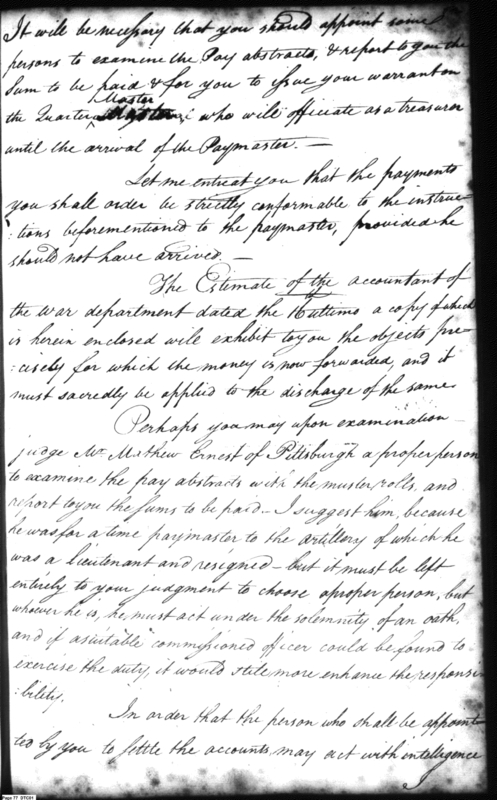 It will be necessary that you should appoint some
persons to examine the Pay abstracts, & report to you the
Sum to be paid & for you to issue your warrant on
Master
the Quarter who will officiate as a treasurer
until the arrival of the Paymaster. —
Let me entreat you that the payments
you shall order be strictly conformable to the instruc-
:tions beforementioned to the paymaster, provided he
should not have arrived. —
The Estimate of the accountant of
the war department dated the ultimo a copy of which
is herein enclosed will exhibit to you the objects pre-
:cisely for which the money is now forwarded, and it
must sacredly be applied to the discharge of the same.
Perhaps you may upon examination
judge Mr. Mathew Ernest of Pittsburgh a proper person
to examine the pay abstracts with the muster rolls, and
report to you the sums to be paid – I suggest him, because
he was for a time paymaster to the artillery of which he
was a lieutenant and resigned – but it must be left
entirely to your judgment to choose a proper person, but
whoever he is, he must act under the solemnity of an oath,
and if a suitable commissioned officer could be found to
exercise the duty, it would still more enhance the responsi
:bility.
In order that the person who shall be appoint-
ted by you to settle the accounts may act with intelligence
Page 77 DTC01